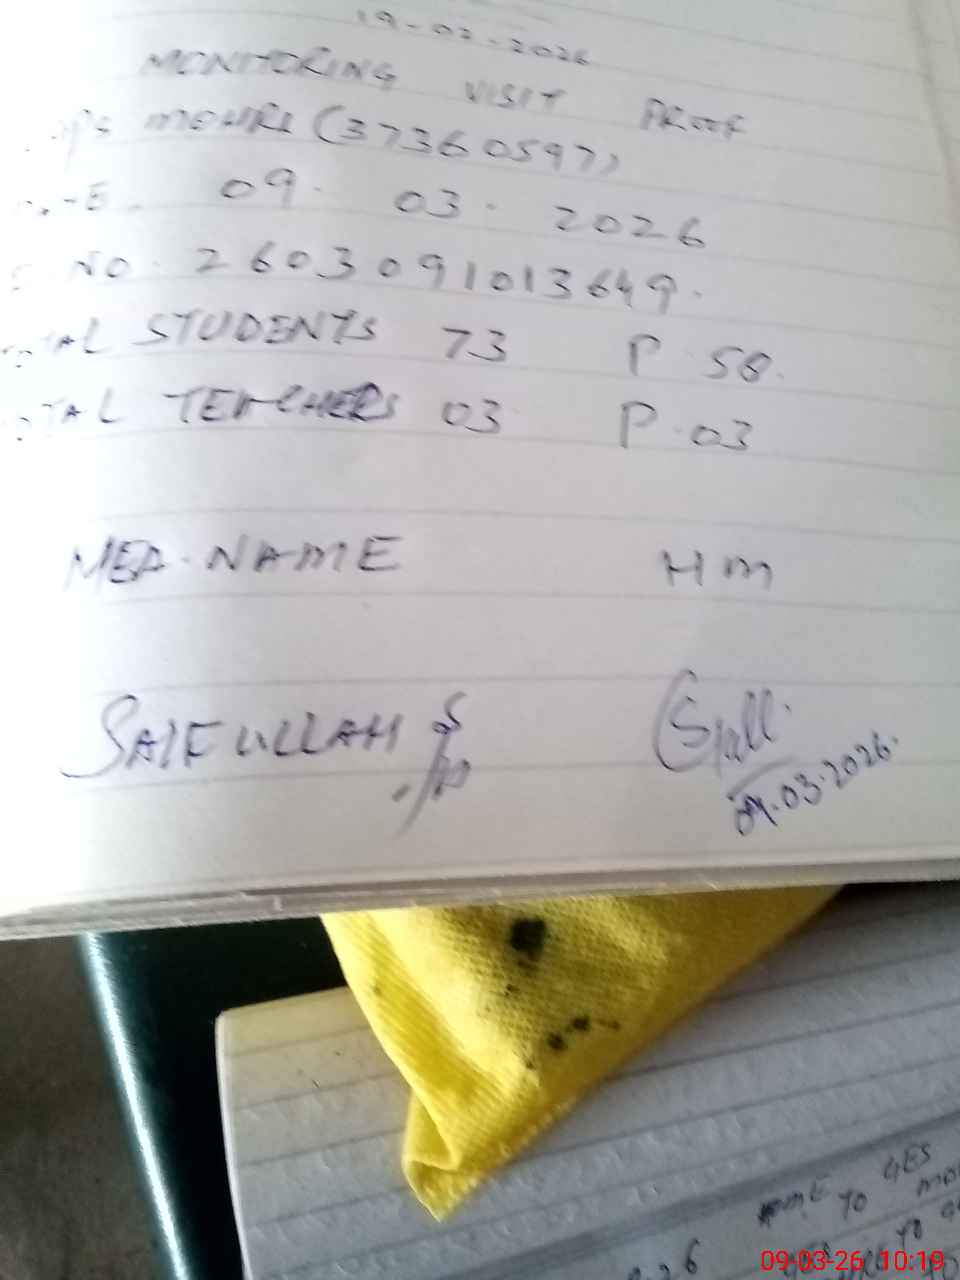 19-02-2026
MONITORING VISIT PROOF
MOHRI (37360597)
09. 03. 2026
NO. 2603091013649.
TOTAL STUDENTS 73 P. 58.
TOTAL TEACHERS 03 P. 03
MEA. NAME HM
SAIFULLAH
09.03.2026.
GES
TO
09-03-26 10:19